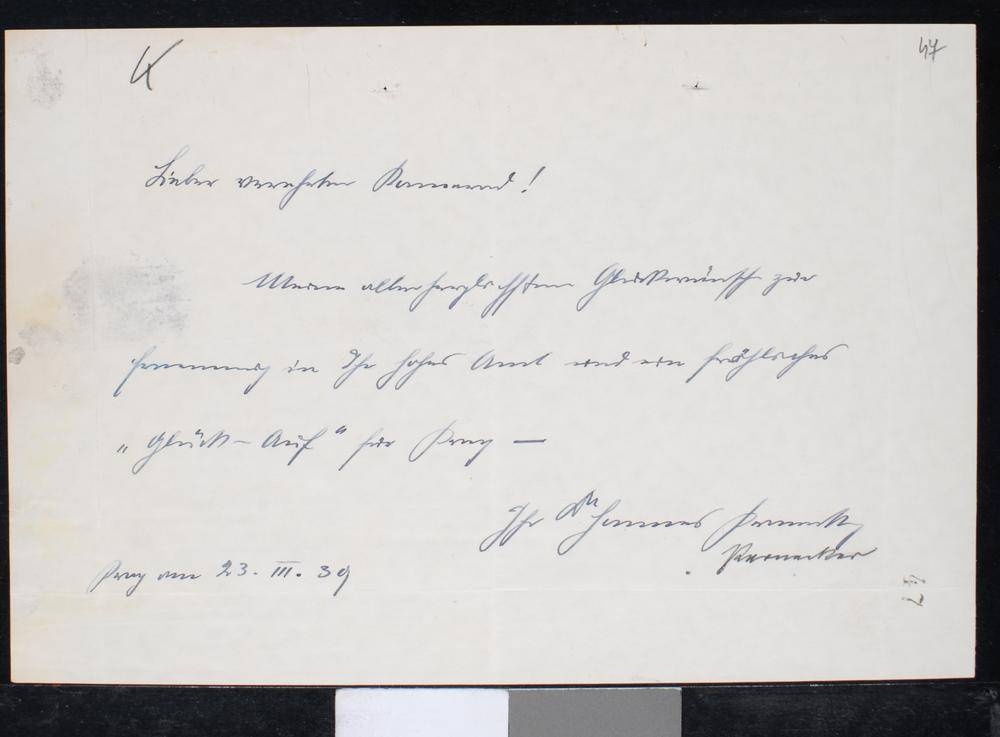 47
Lieber verehrter Kamerad!
Meine allerherzlichsten Glückwünsche zur
Ernennung in Ihr hohes Amt und ein fröhliches
„Glück-Auf" für Prag —
Ihr Dr Hannes
Pernecker
Prag am 23. III. 39
47